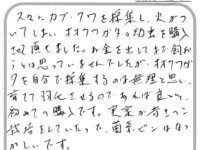 久々にカブ・クワを採集し、火がつ
いてしまい、オオクワガタの幼虫を購入
させ頂きました。お金を出してまで飼おう
とは思っていませんでしたが、オオクワガ
タを自分で採集するのは無理と思い、
育てて羽化させるのであれば良いと、
初めての購入です。実家が昔きのこ
栽培をしていたので、菌糸ビンはなつ
かしいです。